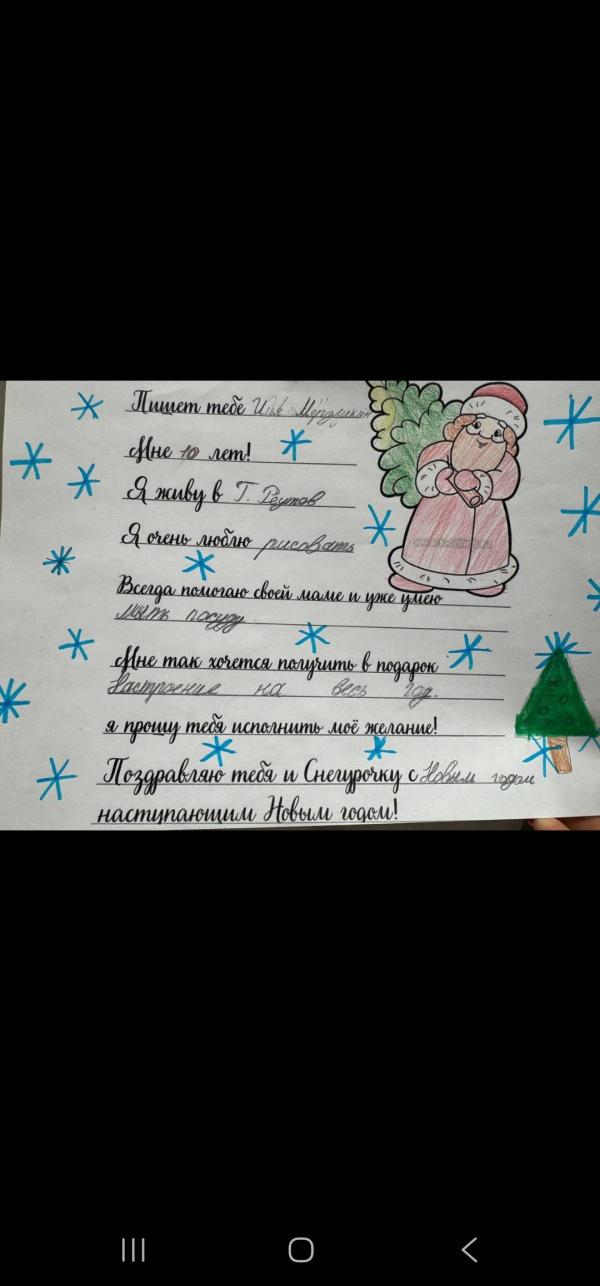 Пишет тебе
Мне 10 лет!
Я живу в Г. Реутов
Я очень люблю рисовать
Всегда помогаю своей маме и уже умею
мыть посуду
Мне так хочется получить в подарок
Настроение на весь год.
я прошу тебя исполнить моё желание!
Поздравляю тебя и Снегурочку с Новым годом
наступающим Новым годом!